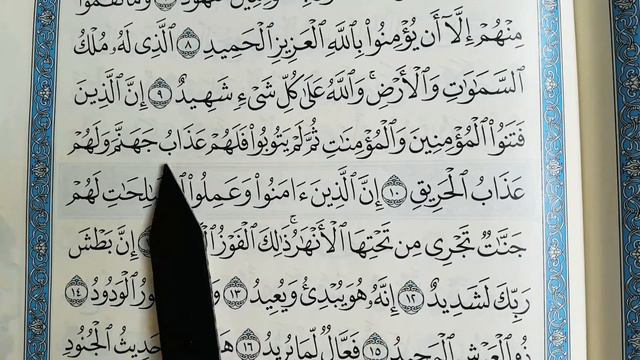 مِنْهُمْ إِلَّآ أَن يُؤْمِنُوا۟ بِٱللَّهِ ٱلْعَزِيزِ ٱلْحَمِيدِ ٨ ٱلَّذِى لَهُۥ مُلْكُ
ٱلسَّمَٰوَٰتِ وَٱلْأَرْضِ ۚ وَٱللَّهُ عَلَىٰ كُلِّ شَىْءٍ شَهِيدٌ ٩ إِنَّ ٱلَّذِينَ
فَتَنُوا۟ ٱلْمُؤْمِنِينَ وَٱلْمُؤْمِنَٰتِ ثُمَّ لَمْ يَتُوبُوا۟ فَلَهُمْ عَذَابُ جَهَنَّمَ وَلَهُمْ
عَذَابُ ٱلْحَرِيقِ ١٠ إِنَّ ٱلَّذِينَ ءَامَنُوا۟ وَعَمِلُوا۟ لَهُمْ
جَنَّٰتٌ تَجْرِى مِن تَحْتِهَا ٱلْأَنْهَٰرُ ۚ ذَٰلِكَ ٱلْفَوْزُ إِنَّ بَطْشَ
رَبِّكَ لَشَدِيدٌ ١٢ إِنَّهُۥ هُوَ يُبْدِئُ وَيُعِيدُ ١٣ ٱلْوَدُودُ ١٤
ذُو ٱلْعَرْشِ ٱلْمَجِيدُ ١٥ فَعَّالٌ لِّمَا يُرِيدُ ١٦ حَدِيثُ ٱلْجُنُودِ